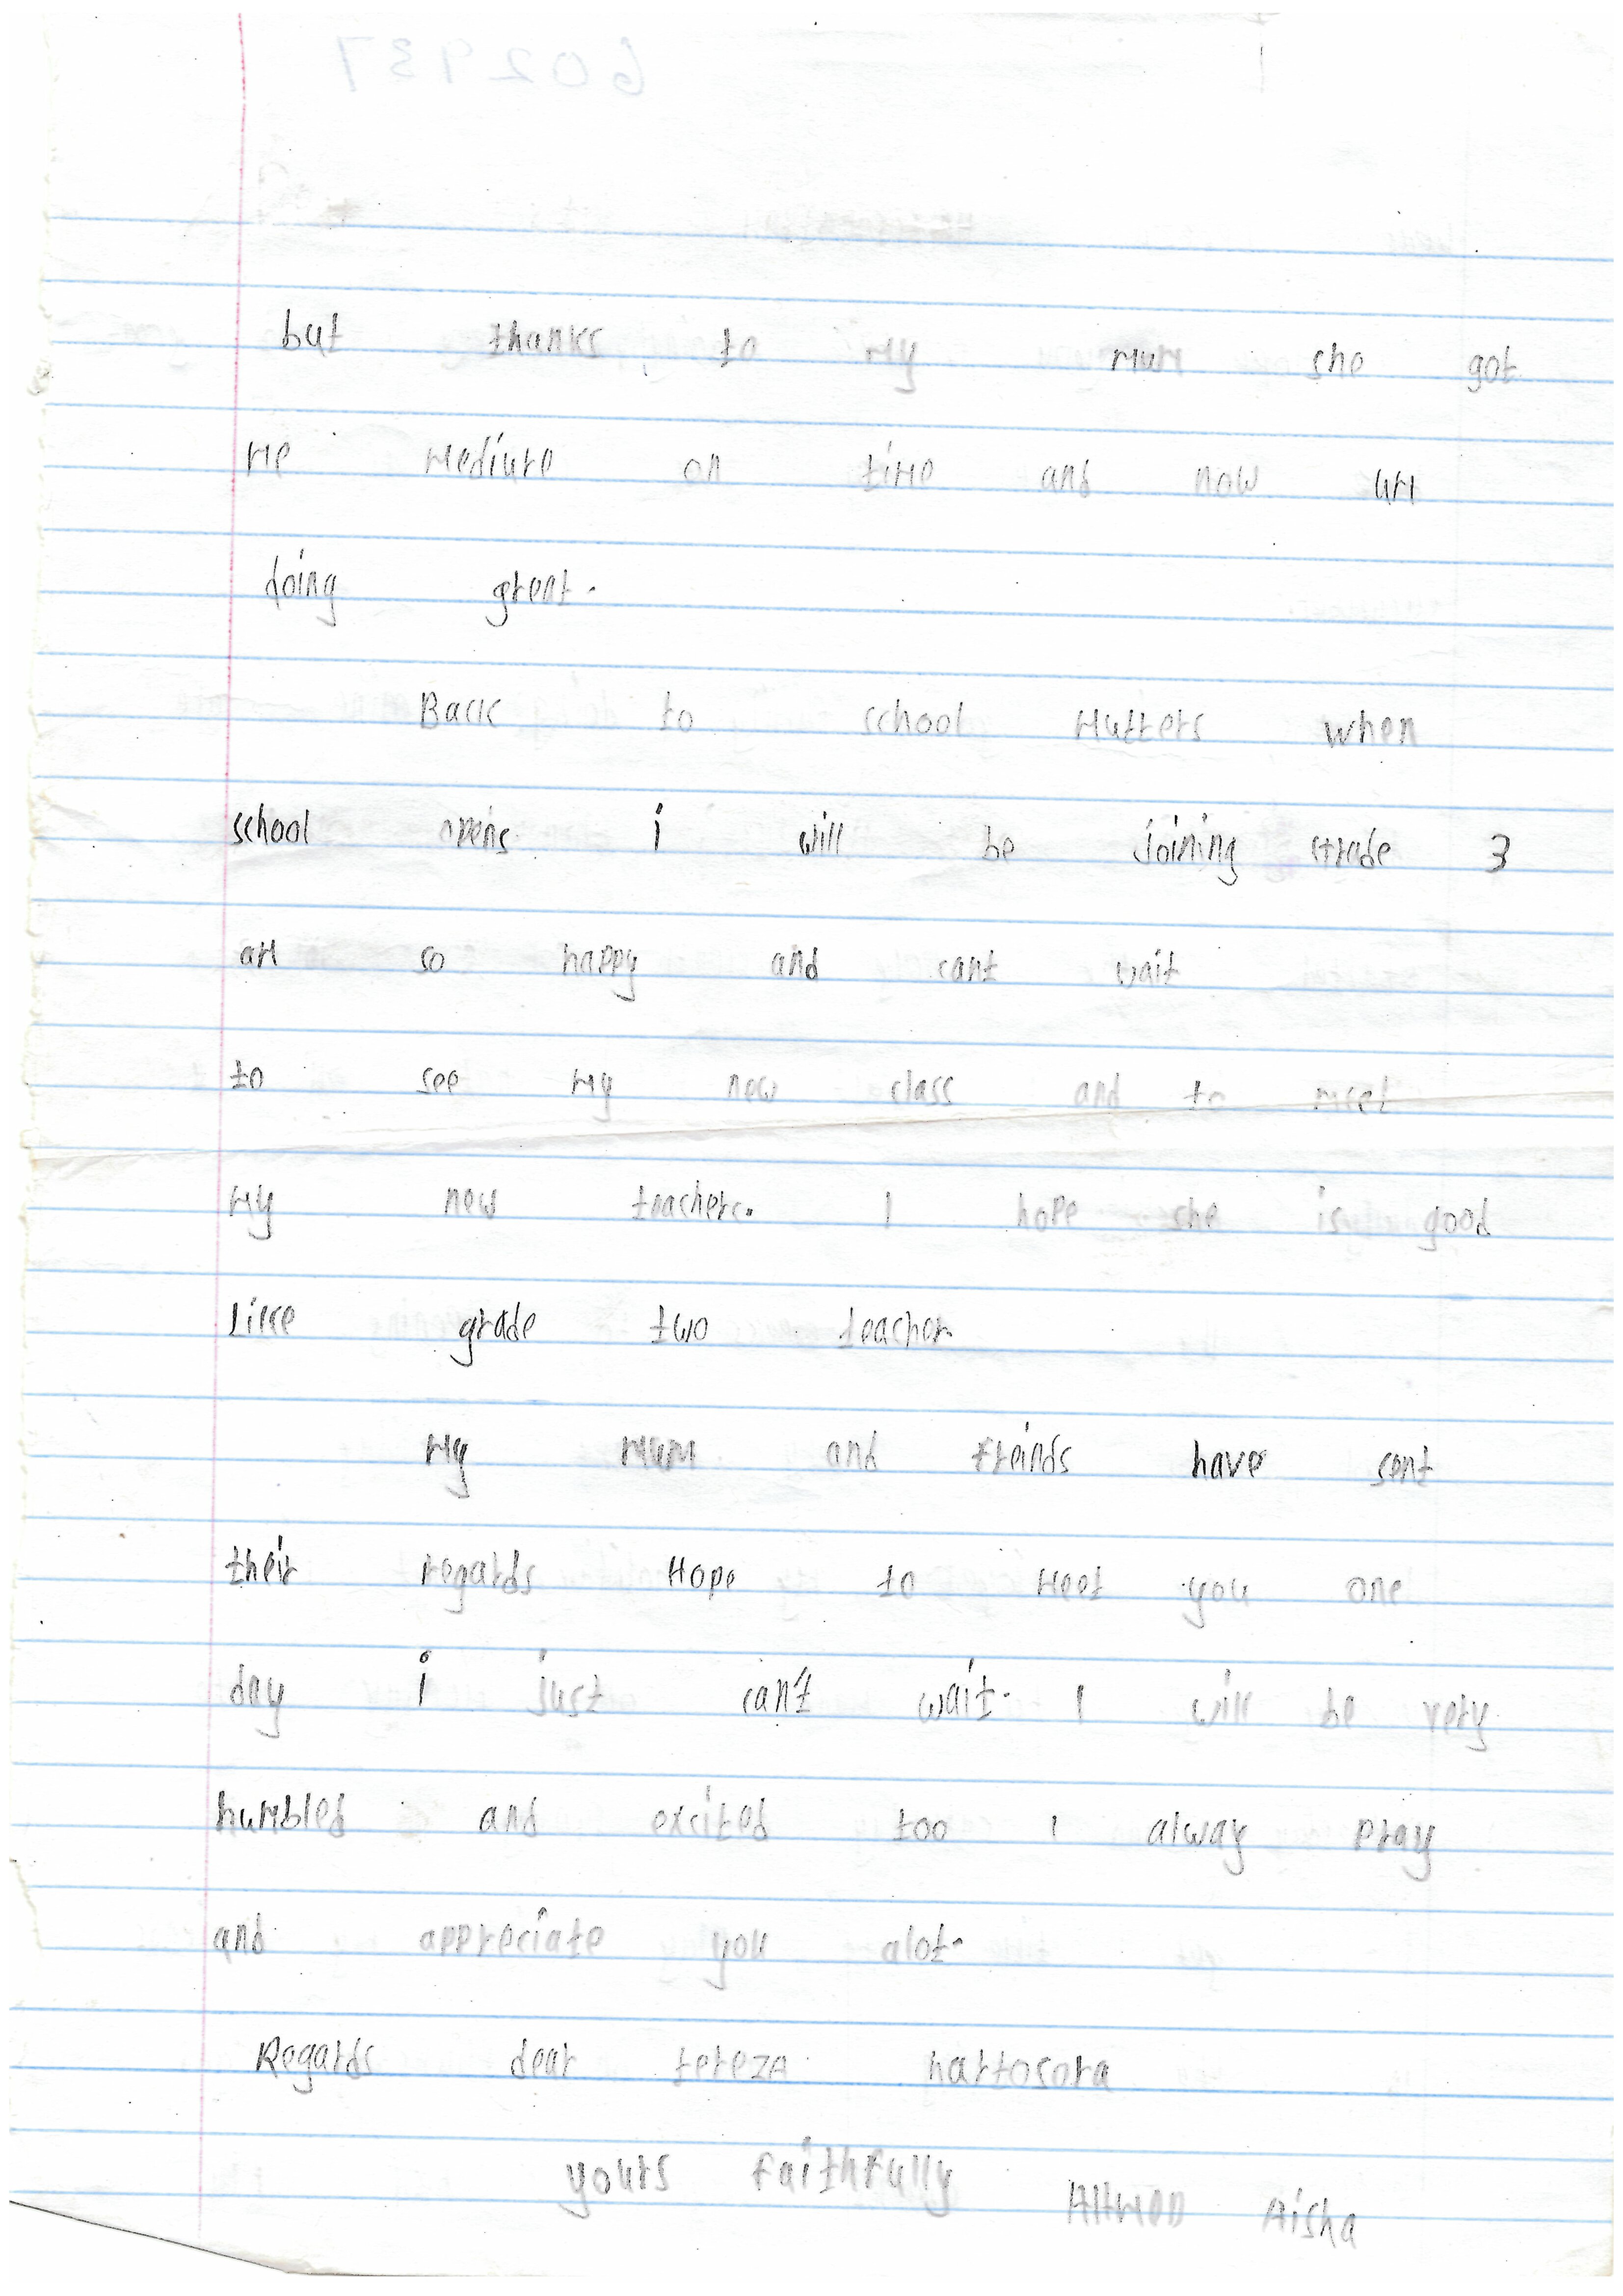 but thanks to my mum she got
me mediure on time and now am
doing great.
Back to school Matters when
school opens i will be joining Grade 3
am so happy and cant wait
to see my new class and to meet
my new teachers. I hope she is good
Like grade two teacher
My mum and freinds have sent
their regards Hope to meet you one
day i just can't wait. I will be very
humbled and excited too I alway pray
and appreciate you alot.
Regards dear tereza hartosora
yours faithfully AHMED Aisha